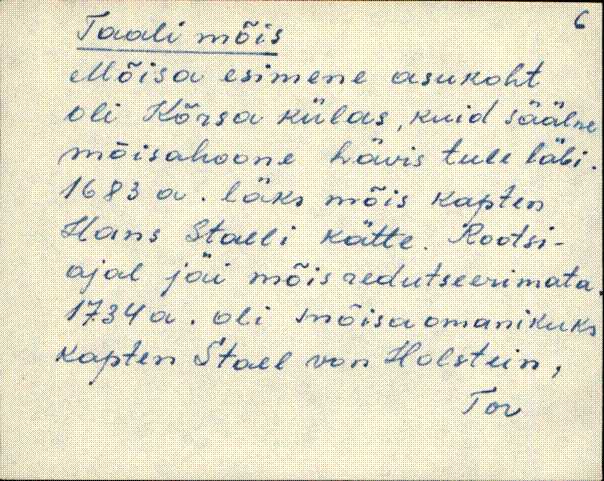 6
Taali mõis
Mõisa esimene asukoht
oli Kõrsa külas, kuid säälne
mõisahoone hävis tule läbi.
1683 a. läks mõis kapten
Hans Staeli kätte. Rootsi-
ajal jäi mõis redutseerimata.
1734 a. oli mõisaomanikuks
kapten Stael von Holstein,
Tor